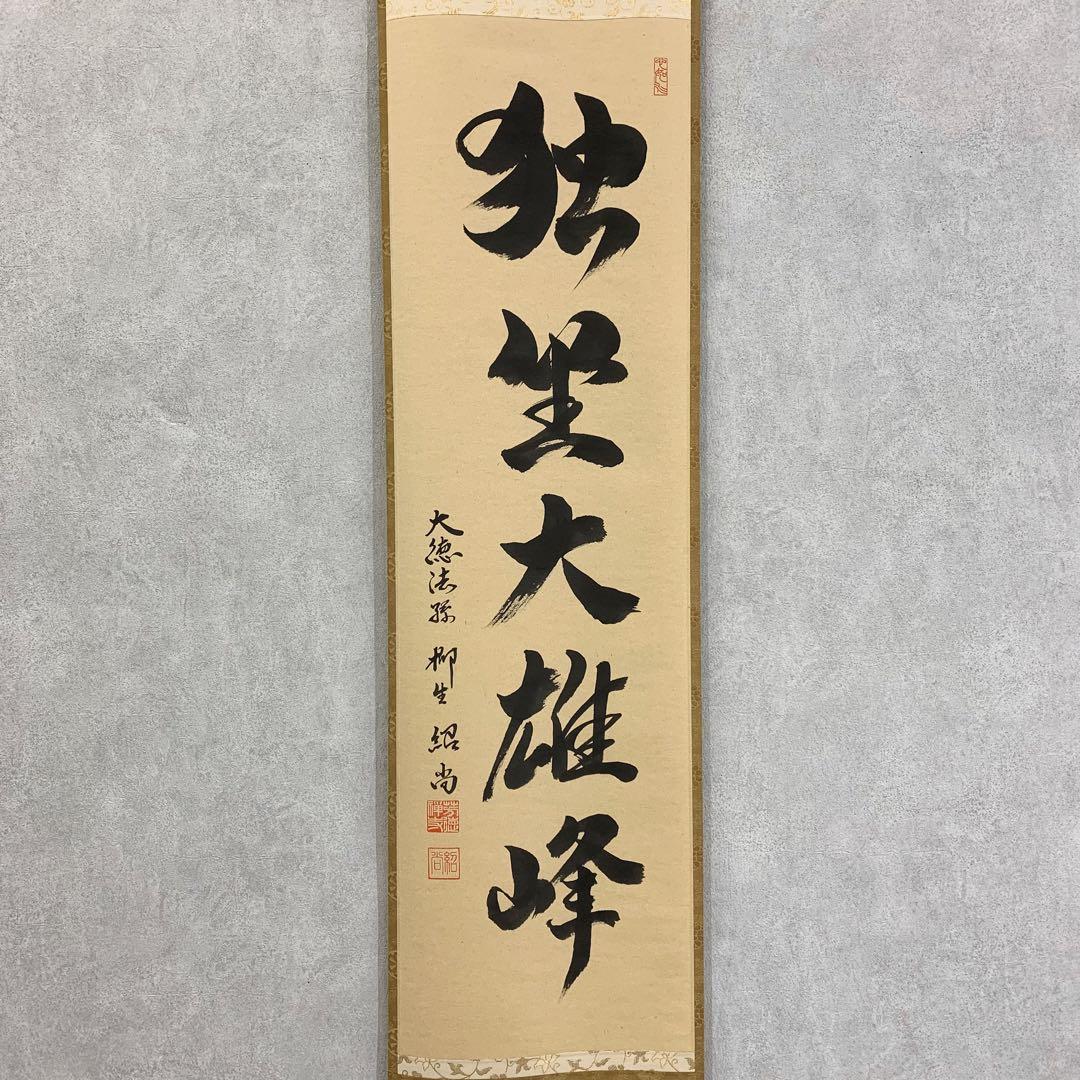 独坐大雄峰
大徳法孫 柳生紹尚
紹尚